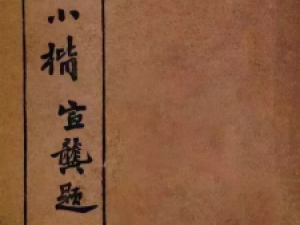 小楷 宣龔题